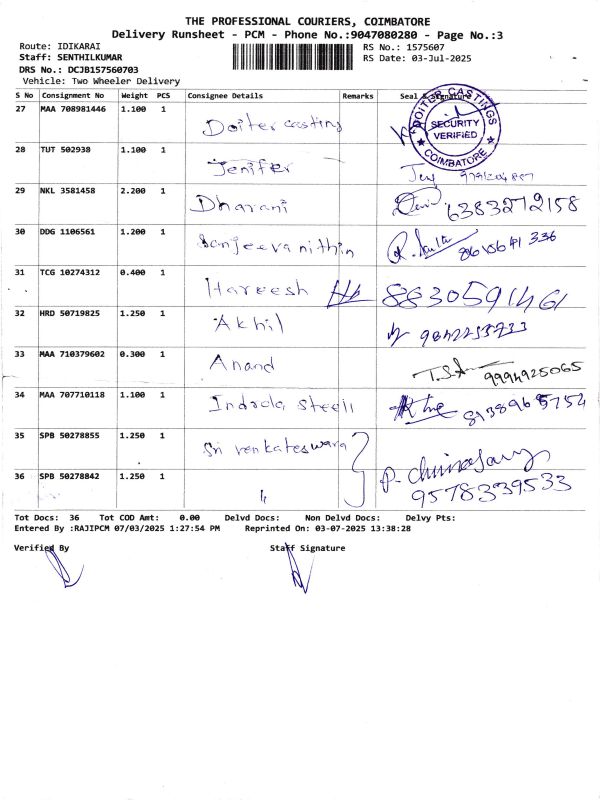 THE PROFESSIONAL COURIERS, COIMBATORE
Delivery Runsheet - PCM - Phone No.:9047080280 - Page No.:3
Route: IDIKARAI
RS No.: 1575607
Staff: SENTHILKUMAR
RS Date: 03-Jul-2025
DRS No.: DCJB157560703
Vehicle: Two Wheeler Delivery
S No Consignment No Weight PCS Consignee Details Remarks Seal & Signature
27 MAA 708981446 1.100 1 Doiter casting
DOITER CASTINGS
SECURITY
VERIFIED
★ COIMBATORE ★
28 TUT 502938 1.100 1 Jenifer Jeny
29 NKL 3581458 2.200 1 Dharani 6383272158
30 DDG 1106561 1.200 1 Sanjeeva nithin
31 TCG 10274312 0.400 1 Hareesh 8830591461
32 HRD 50719825 1.250 1 Akhil
33 MAA 710379602 0.300 1 Anand 9994925065
34 MAA 707710118 1.100 1 Indrola steell
35 SPB 50278855 1.250 1 Sri venkateswara
36 SPB 50278842 1.250 1 " 9578339533
Tot Docs: 36 Tot COD Amt: 0.00 Delvd Docs: Non Delvd Docs: Delvy Pts:
Entered By :RAJIPCM 07/03/2025 1:27:54 PM Reprinted On: 03-07-2025 13:38:28
Verified By Staff Signature